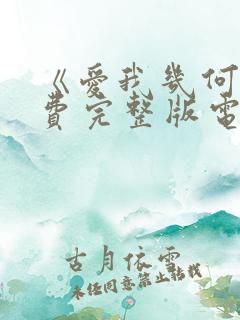 《爱我幾何
費完整版電
古月依雲
未经同意禁止转载